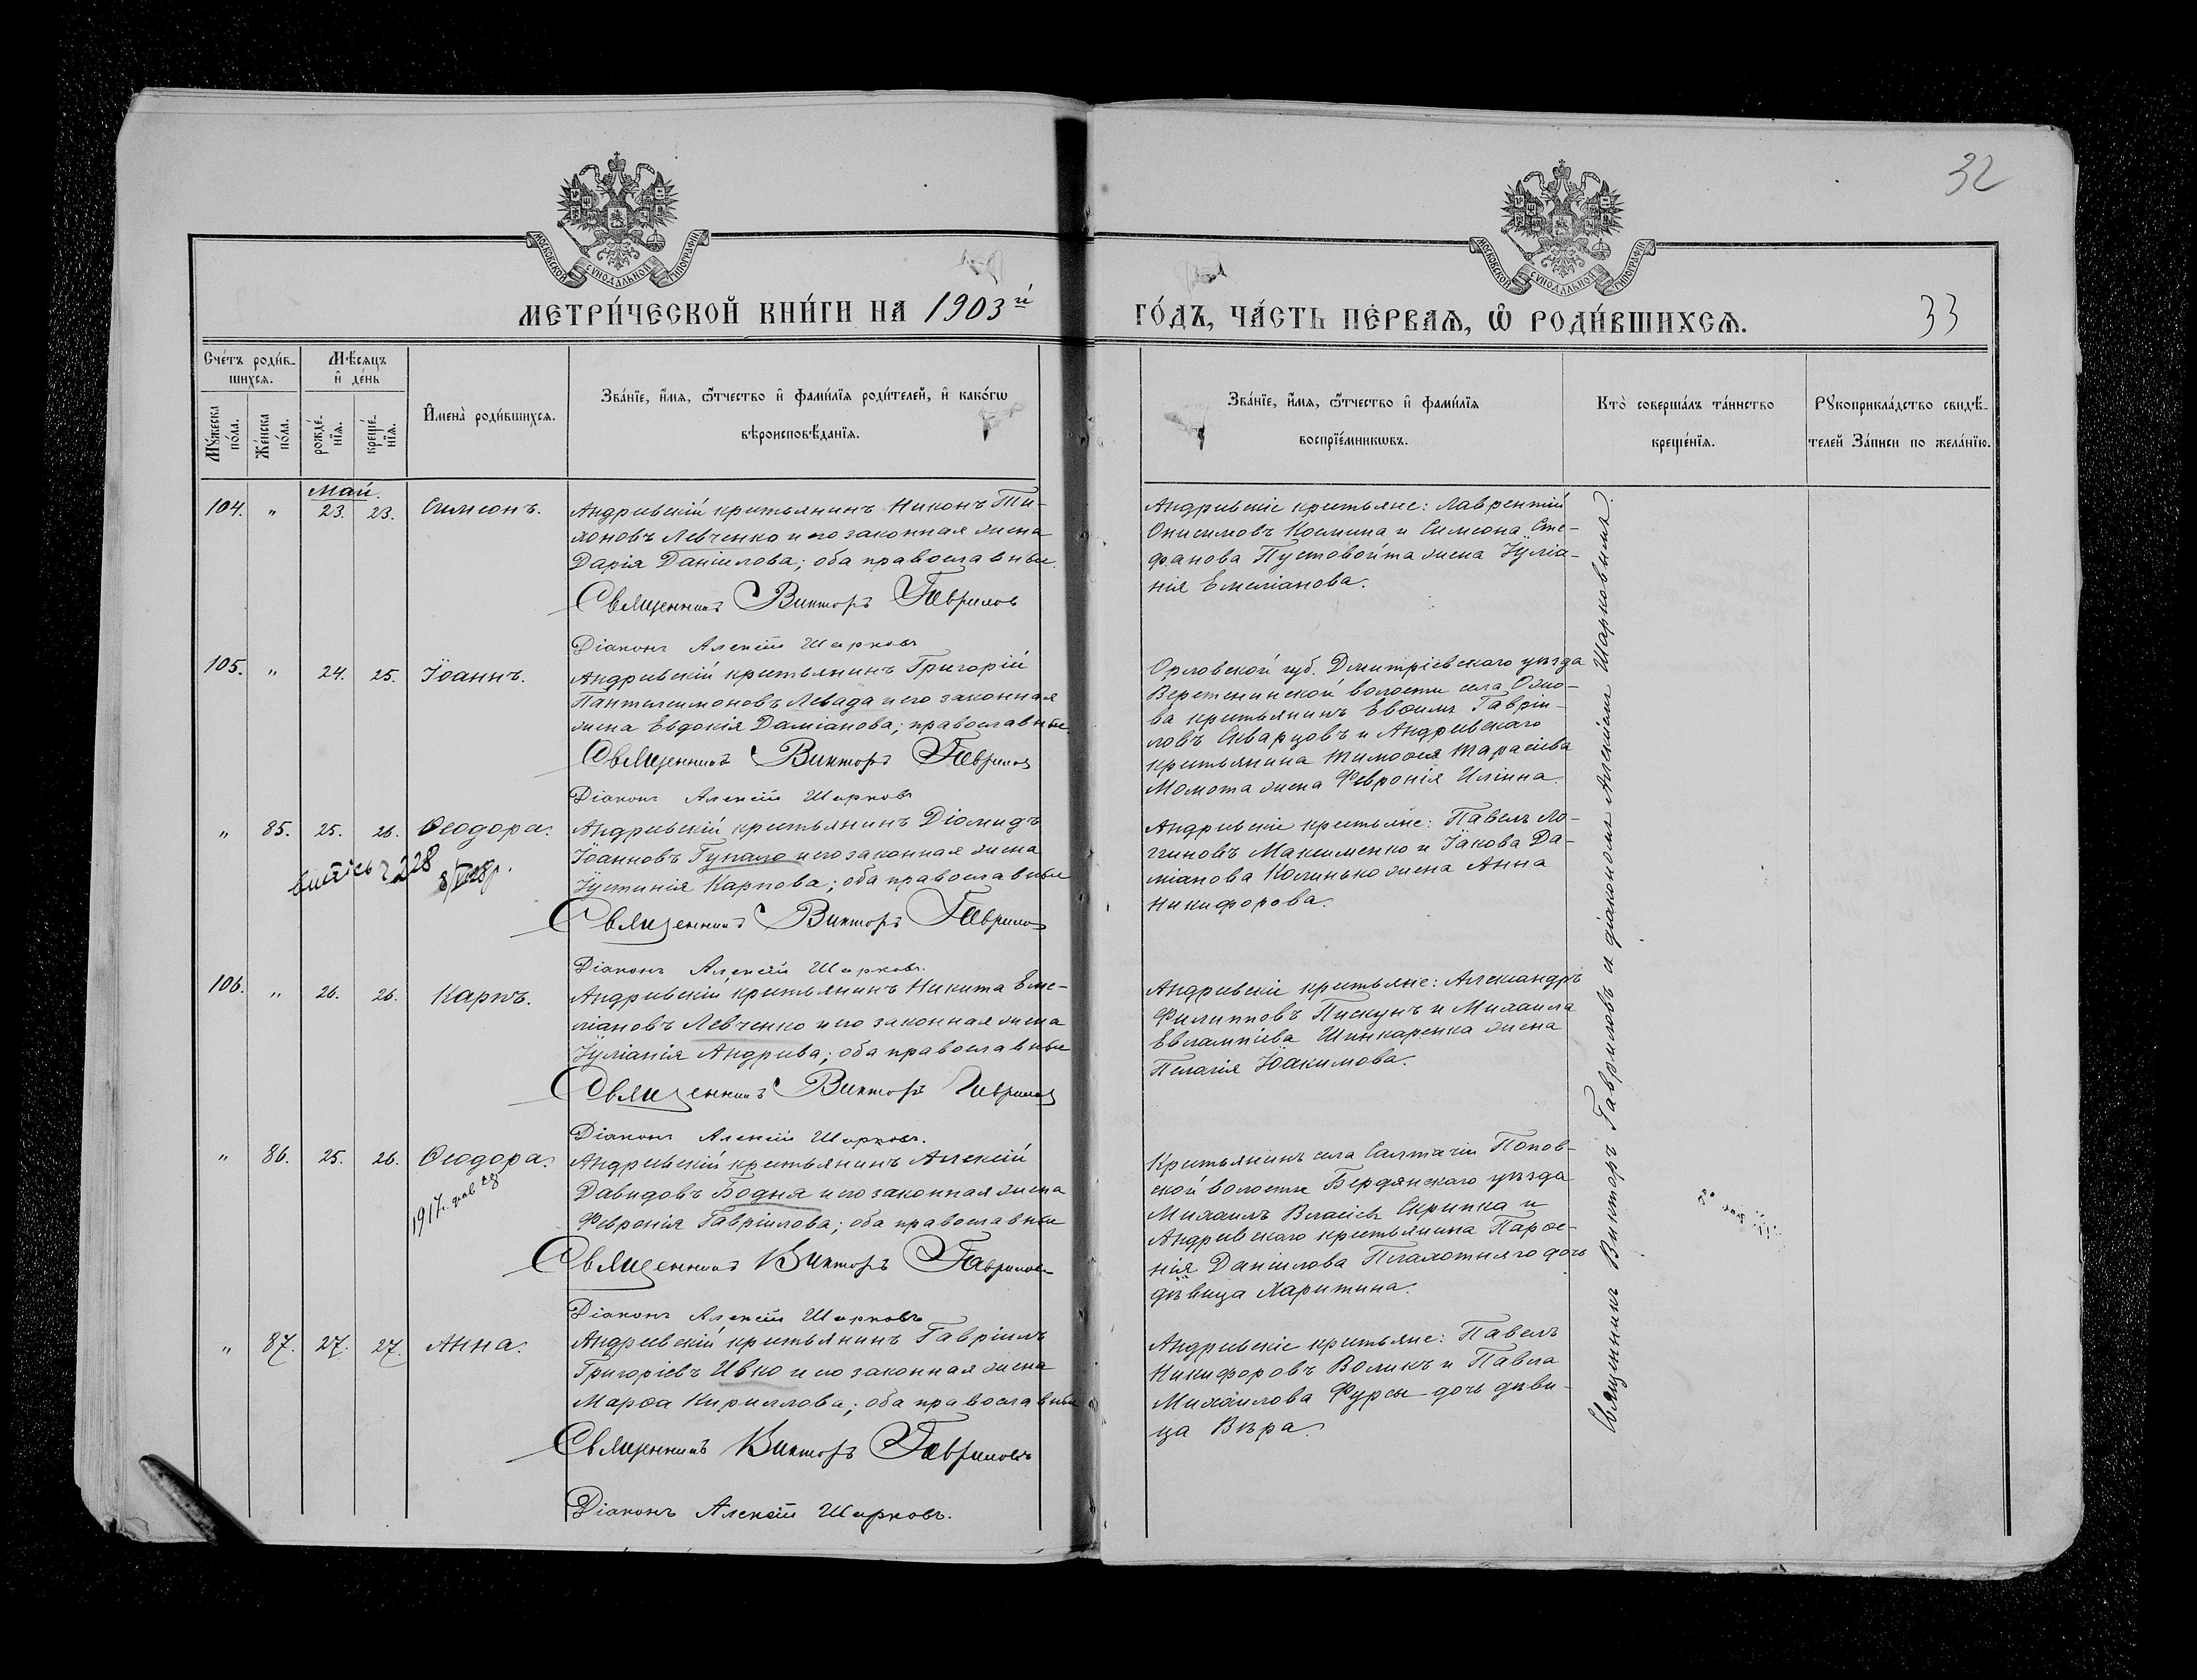 32
МОСКОВСКОЙ СУНОДАЛЬНОЙ ТИПОГРАФІИ
МОСКОВСКОЙ СУНОДАЛЬНОЙ ТИПОГРАФІИ
МЕТРИ́ЧЕСКОЙ КНИ́ГИ НА 1903й
ГО́ДЪ, ЧА́СТЬ ПЕ́РВАѦ, Ѡ РОДИ́ВШИХСѦ.
33
Сче́тъ роди́в-
шихсѧ.
Мꙋ́жеска по́ла.
Же́нска по́ла.
Мѣ́сѧцъ
и҆ де́нь
рожде́-
нїѧ.
креще́-
нїѧ.
И҆мена̀ роди́вшихсѧ.
Зва́нїе, и҆́мѧ, ѻ҆́тчество и҆ фами́лїѧ роди́телей, и҆ како́гѡ
вѣроисповѣ́данїѧ.
Зва́нїе, и҆́мѧ, ѻ҆́тчество и҆ фами́лїѧ
воспрїе́мникѡвъ.
Кто̀ соверша́лъ та́инство
креще́нїѧ.
Рꙋкоприкла́дство свидѣ́-
телей За́писи по жела́нїю.
Май.
104. " 23. 23. Симеонъ.
Андреевскій крестьянинъ Никонъ Ти-
моновъ Левченко и его законная жена
Дарія Даніилова; оба православные.
Священникъ Викторъ Гавриловъ
Діаконъ Алексій Шарковъ
Андреевскіе крестьяне: Лаврентій
Онисимовъ Космина и Симеона Сте-
фанова Пустовойта жена Іуліа-
нія Емеліанова.
105. " 24. 25. Іоаннъ.
Андреевскій крестьянинъ Григорій
Пантелеимоновъ Левада и его законная
жена Евдокія Даміанова; православные.
Священникъ Викторъ Гавриловъ
Діаконъ Алексій Шарковъ
Орловской губ. Дмитріевскаго уѣзда
Веретенинской волости села
крестьянинъ Евѳимъ Гаврі-
ловъ Скварцовъ и Андреевскаго
крестьянина Тимоѳея Тарасіева
Момота жена Февронія Иліина.
" 85. 25. 26. Ѳеодора.
8/VI 28 р.
Андреевскій крестьянинъ Діомидъ
Іоанновъ Гупало и его законная жена
Іустинія Карпова; оба православные
Священникъ Викторъ Гавриловъ
Діаконъ Алексій Шарковъ.
Андреевскіе крестьяне: Павелъ Ло-
ггиновъ Максименко и Іакова Да-
міанова Калинько жена Анна
Никифорова.
106. " 26. 26. Карпъ.
Андреевскій крестьянинъ Никита Еме-
ліановъ Левченко и его законная жена
Іуліанія Андреева; оба православные
Священникъ Викторъ Гавриловъ
Діаконъ Алексій Шарковъ.
Андреевскіе крестьяне: Александръ
Филипповъ Пискунъ и Михаила
Евлампіева Шинкаренка жена
Пелагія Іоакимова.
" 86. 25. 26. Ѳеодора.
1917 г.
Андреевскій крестьянинъ Алексій
Давидовъ Бодня и его законная жена
Февронія Гавріилова; оба православные
Священникъ Викторъ Гавриловъ
Діаконъ Алексій Шарковъ
Крестьянинъ села Салтачіи Попов-
ской волости Бердянскаго уѣзда
Михаилъ Власіевъ Скрипка и
Андреевскаго крестьянина Парѳе-
нія Даніилова дочь
дѣвица Харитина.
" 87. 27. 27. Анна.
Андреевскій крестьянинъ Гавріилъ
Григоріевъ Ивко и его законная жена
Марѳа Кириллова; оба православные
Священникъ Викторъ Гавриловъ
Діаконъ Алексій Шарковъ.
Андреевскіе крестьяне: Павелъ
Никифоровъ Воликъ и Павла
Михаилова Фурсы дочь дѣви-
ца Вѣра.
Священникъ Викторъ Гавриловъ съ діакономъ Алексіемъ Шарковымъ.